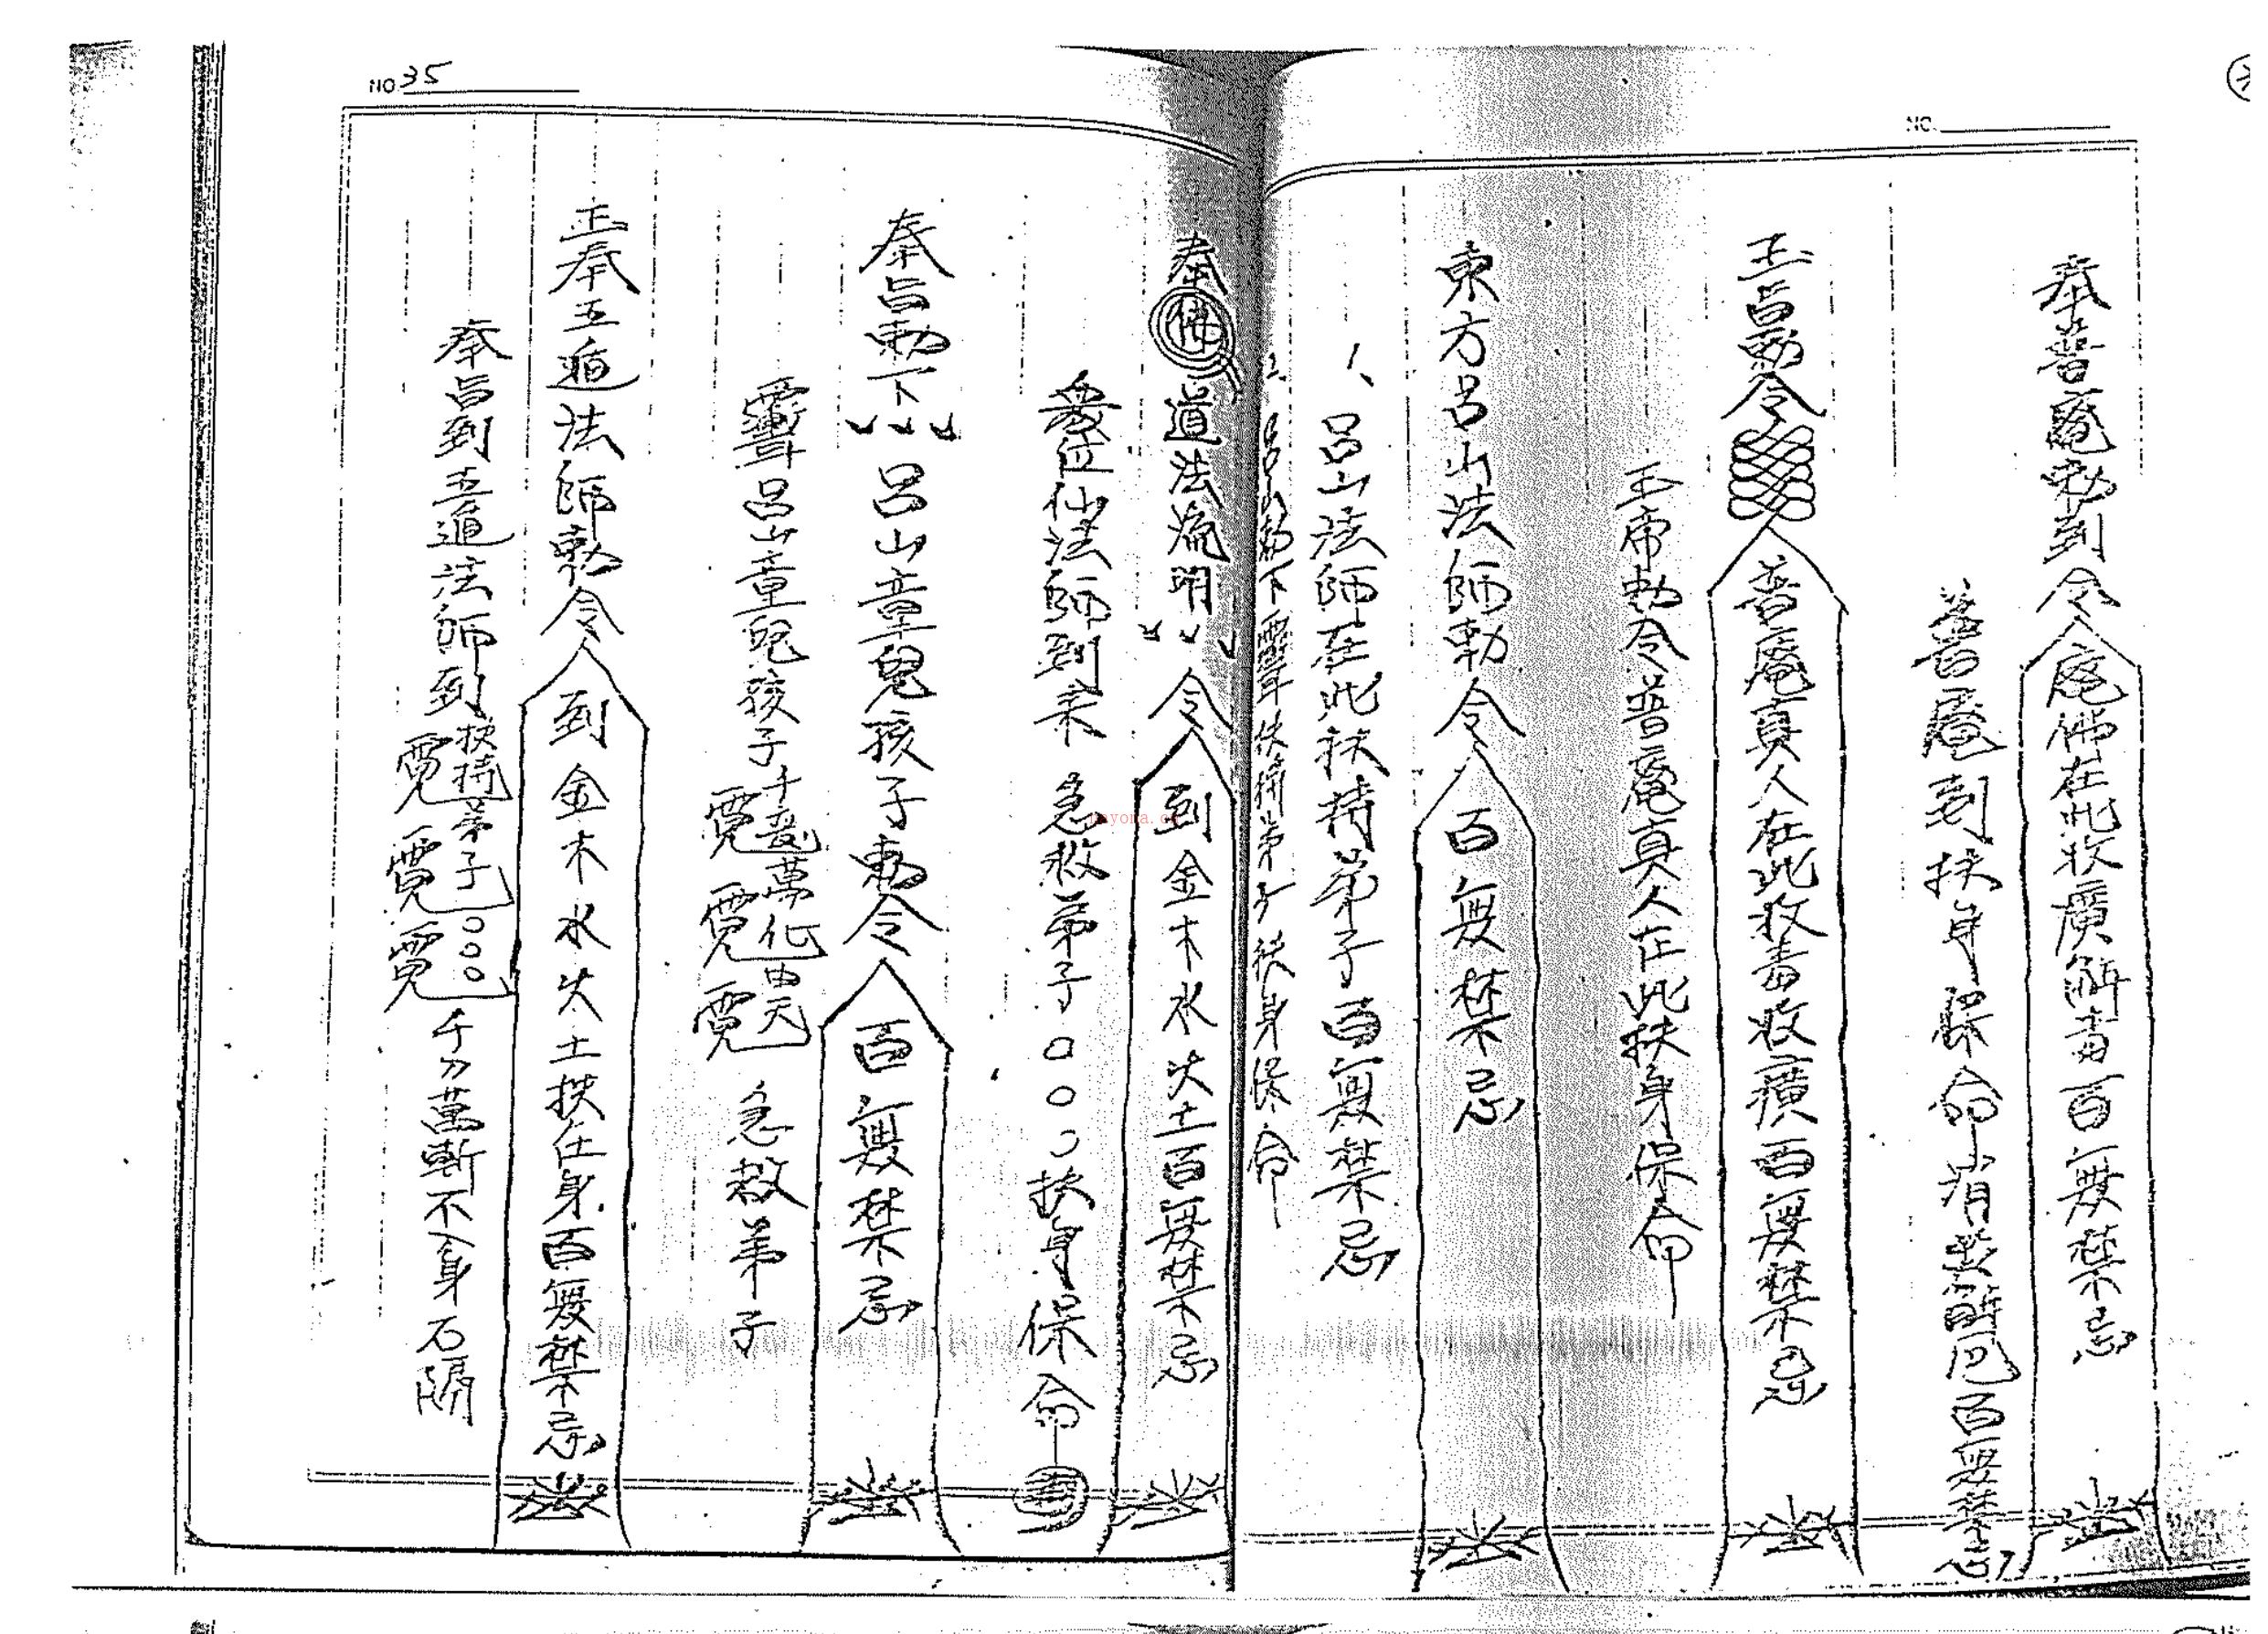 NO.
奉普庵勅到令庵佛在此收癀解毒百無禁忌
普庵到扶身保命消災解厄百無禁忌
玉旨勅令普庵真人在此收毒收癀百無禁忌
玉帝勅令普庵真人在此扶身保命
東方呂山法師勅令百無禁忌
1、呂山法師在此扶持弟子百無禁忌
2、呂山勅下靈扶持弟子扶身保命
NO 35
奉佛道法流明令到金木水火土百無禁忌
眾位仙法師到來 急救弟子○○○扶身保命
奉旨勅下呂山童兒孩子勅令百無禁忌
呂山童兒孩子千變萬化 急救弟子
玉奉五遁法師勅令到金木水火土扶在身百無禁忌
奉旨到五遁法師到扶持弟子○○○千刀萬斬不入身石隔